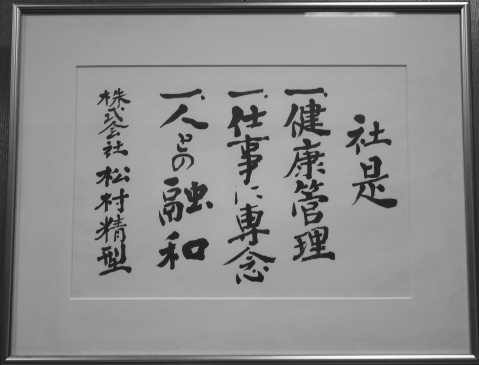 社是
一、健康管理
一、仕事に専念
一、人との融和
株式会社 松村精型